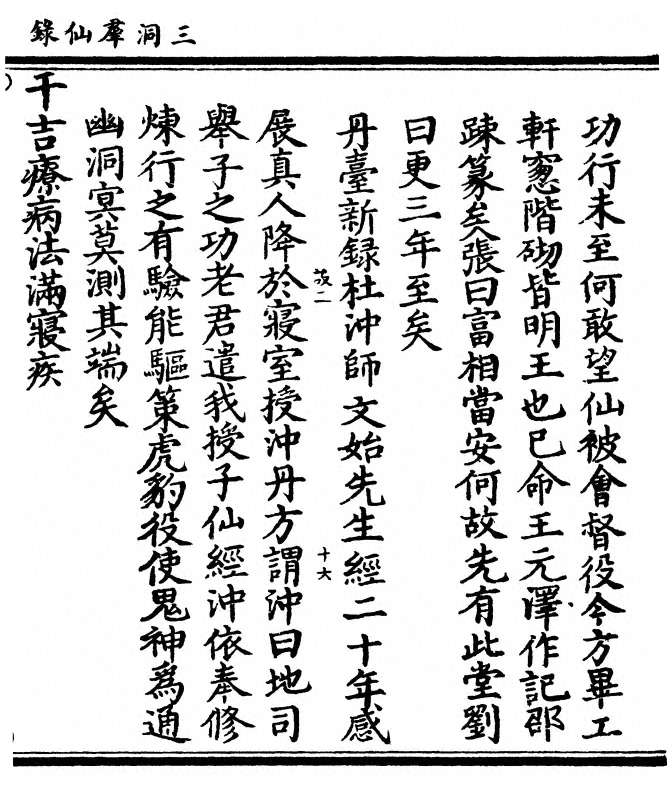 三洞羣仙錄
功行未至何敢望仙被會督役今方畢工
軒窓階砌皆明王也已命王元澤作記邵
踈篆矣張曰富相當安何故先有此堂劉
曰更三年至矣
丹臺新録杜沖師文始先生經二十年感
展真人降於寢室授沖丹方謂沖曰地司
舉子之功老君遣我授子仙經沖依奉修
煉行之有驗能驅策虎豹役使鬼神爲通
幽洞冥莫測其端矣
干吉療病法滿寢疾
十六